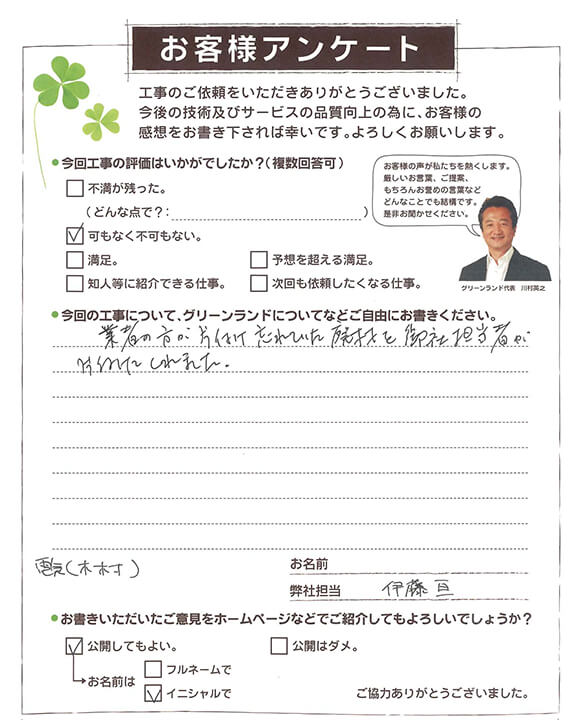 お客様アンケート
工事のご依頼をいただきありがとうございました。
今後の技術及びサービスの品質向上の為に、お客様の
感想をお書き下されば幸いです。よろしくお願いします。
今回工事の評価はいかがでしたか？（複数回答可）
不満が残った。
（どんな点で？：　）
可もなく不可もない。
満足。
予想を超える満足。
知人等に紹介できる仕事。
次回も依頼したくなる仕事。
お客様の声が私たちを熱くします。
厳しいお言葉、ご提案、
もちろんお誉めの言葉など
どんなことでも結構です。
是非お聞かせください。
グリーンランド代表　川村英之
今回の工事について、グリーンランドについてなどご自由にお書きください。
業者の方が片付け忘れていた廃材を御社担当者が
片付けてくれました。
電気(木村)
お名前
弊社担当　伊藤亘
お書きいただいたご意見をホームページなどでご紹介してもよろしいでしょうか？
公開してもよい。
公開はダメ。
お名前は
フルネームで
イニシャルで
ご協力ありがとうございました。